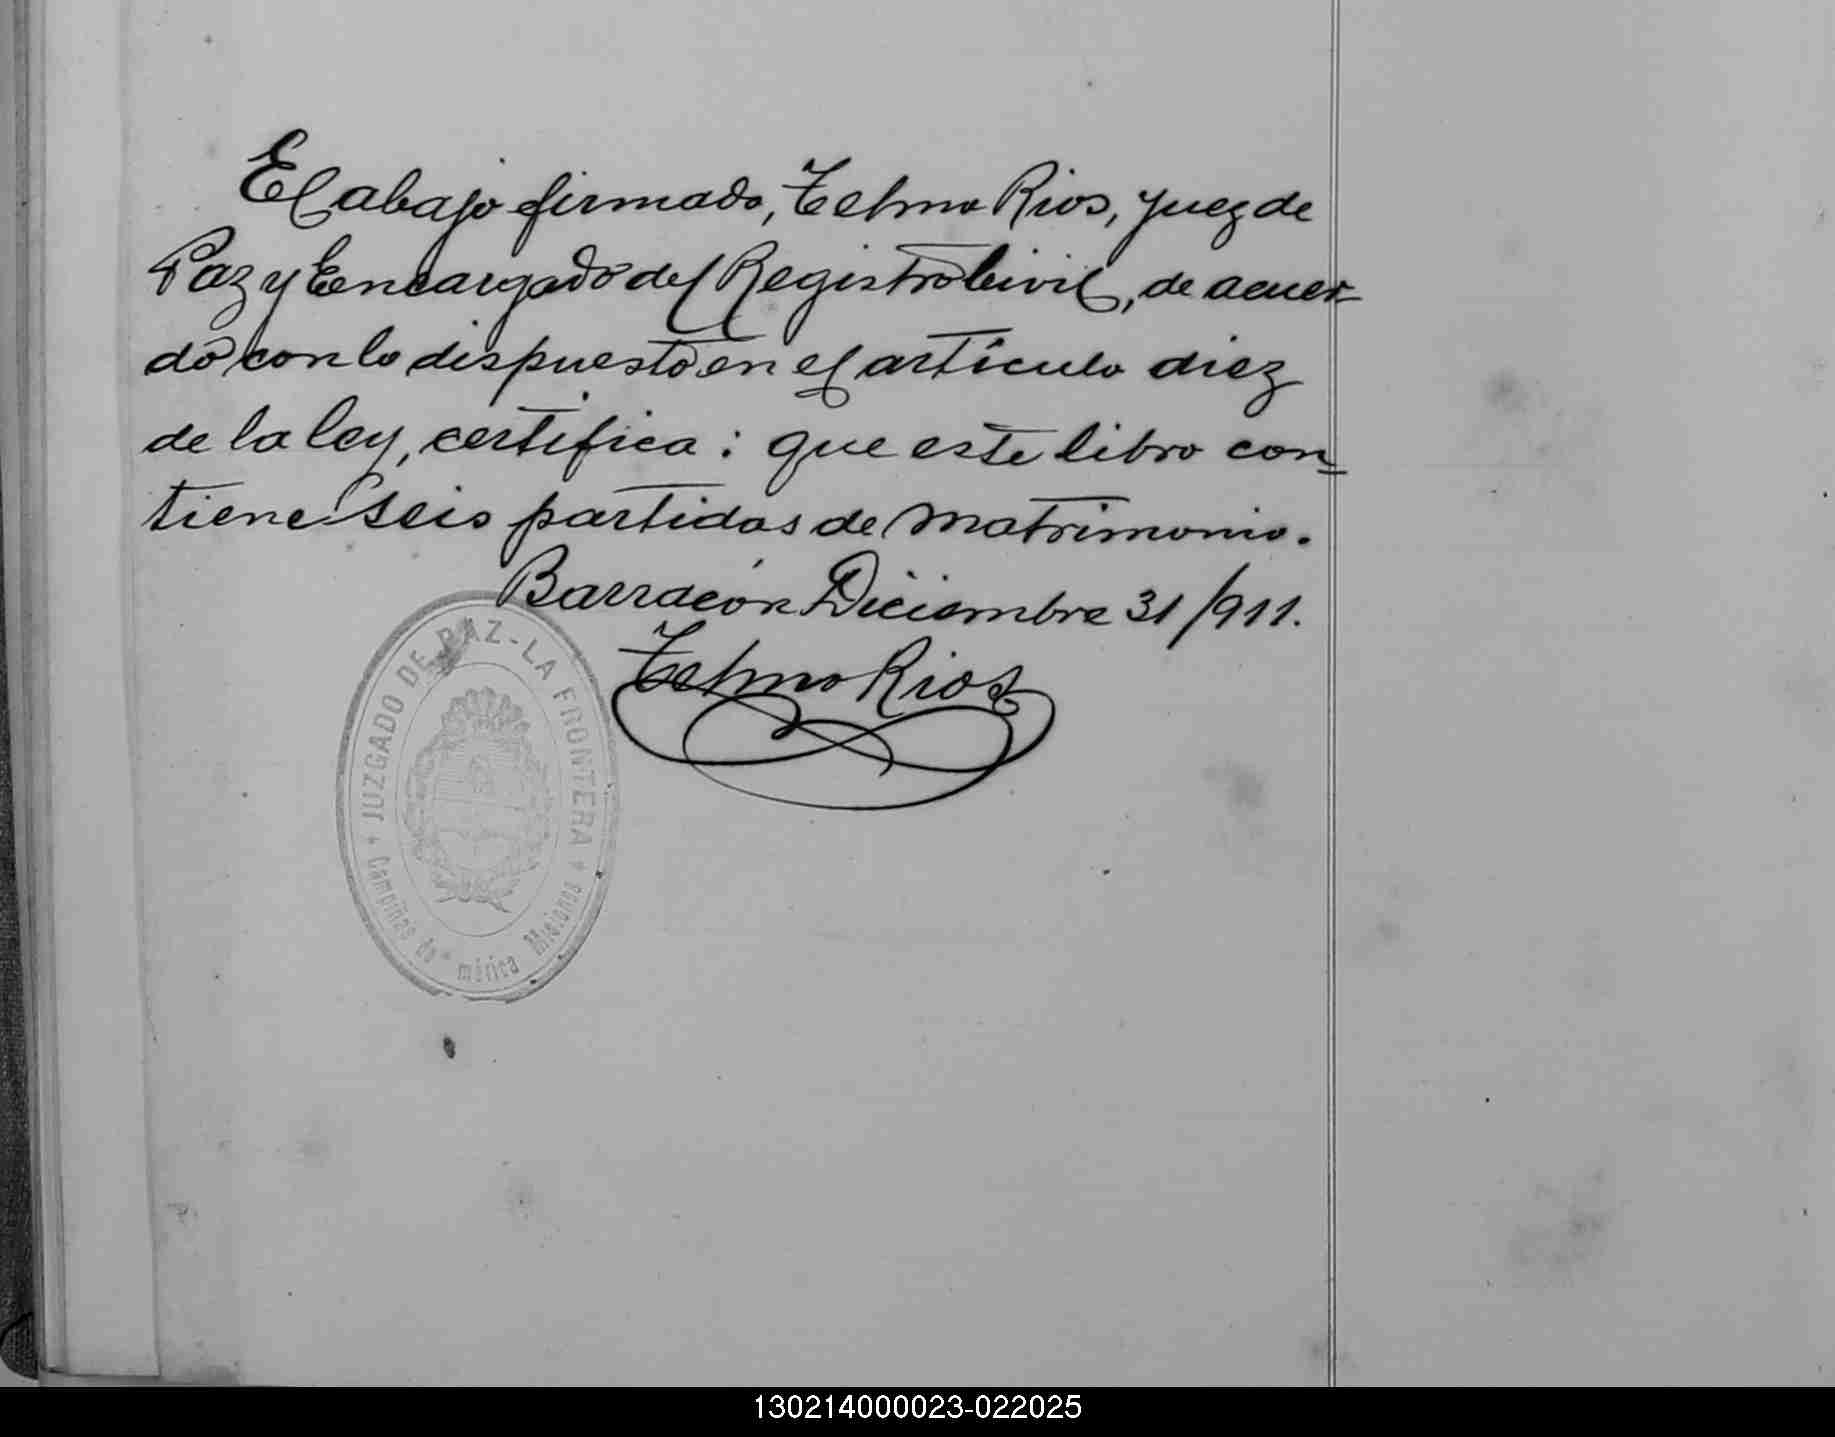 El abajo firmado, Telmo Rios, Juez de
Paz y Encargado del Registro Civil, de acuer-
do con lo dispuesto en el artículo diez
de la ley, certifica: que este libro con=
tiene seis partidas de matrimonio.
Barracón Diciembre 31/911.
Telmo Rios
JUZGADO DE PAZ - LA FRONTERA
Campinas de mérica Misiones
130214000023-022025